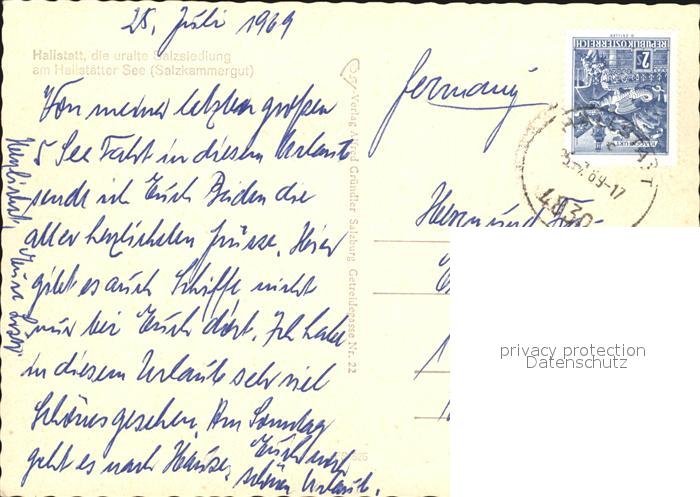 25. Juli 1969
Hallstatt, die uralte Salzsiedlung
am Hallstätter See (Salzkammergut)
Von meiner letzten großen
5 See Fahrt in diesem Urlaub
sende ich Euch Beiden die
allerherzlichsten Grüsse. Hier
gibt es auch Schiffe nicht
nur bei Euch dort. Ich habe
in diesem Urlaube sehr viel
Schönes gesehen. Am Sonntag
geht es nach Hause. Euch noch
schönen Urlaub.
Herzlichst Eure
Verlag Alfred Gründler Salzburg Getreidegasse Nr. 22
Germany
REPUBLIK ÖSTERREICH
2
HALLSTATT
25.7.69-17
4830
Herrn und
privacy protection
Datenschutz